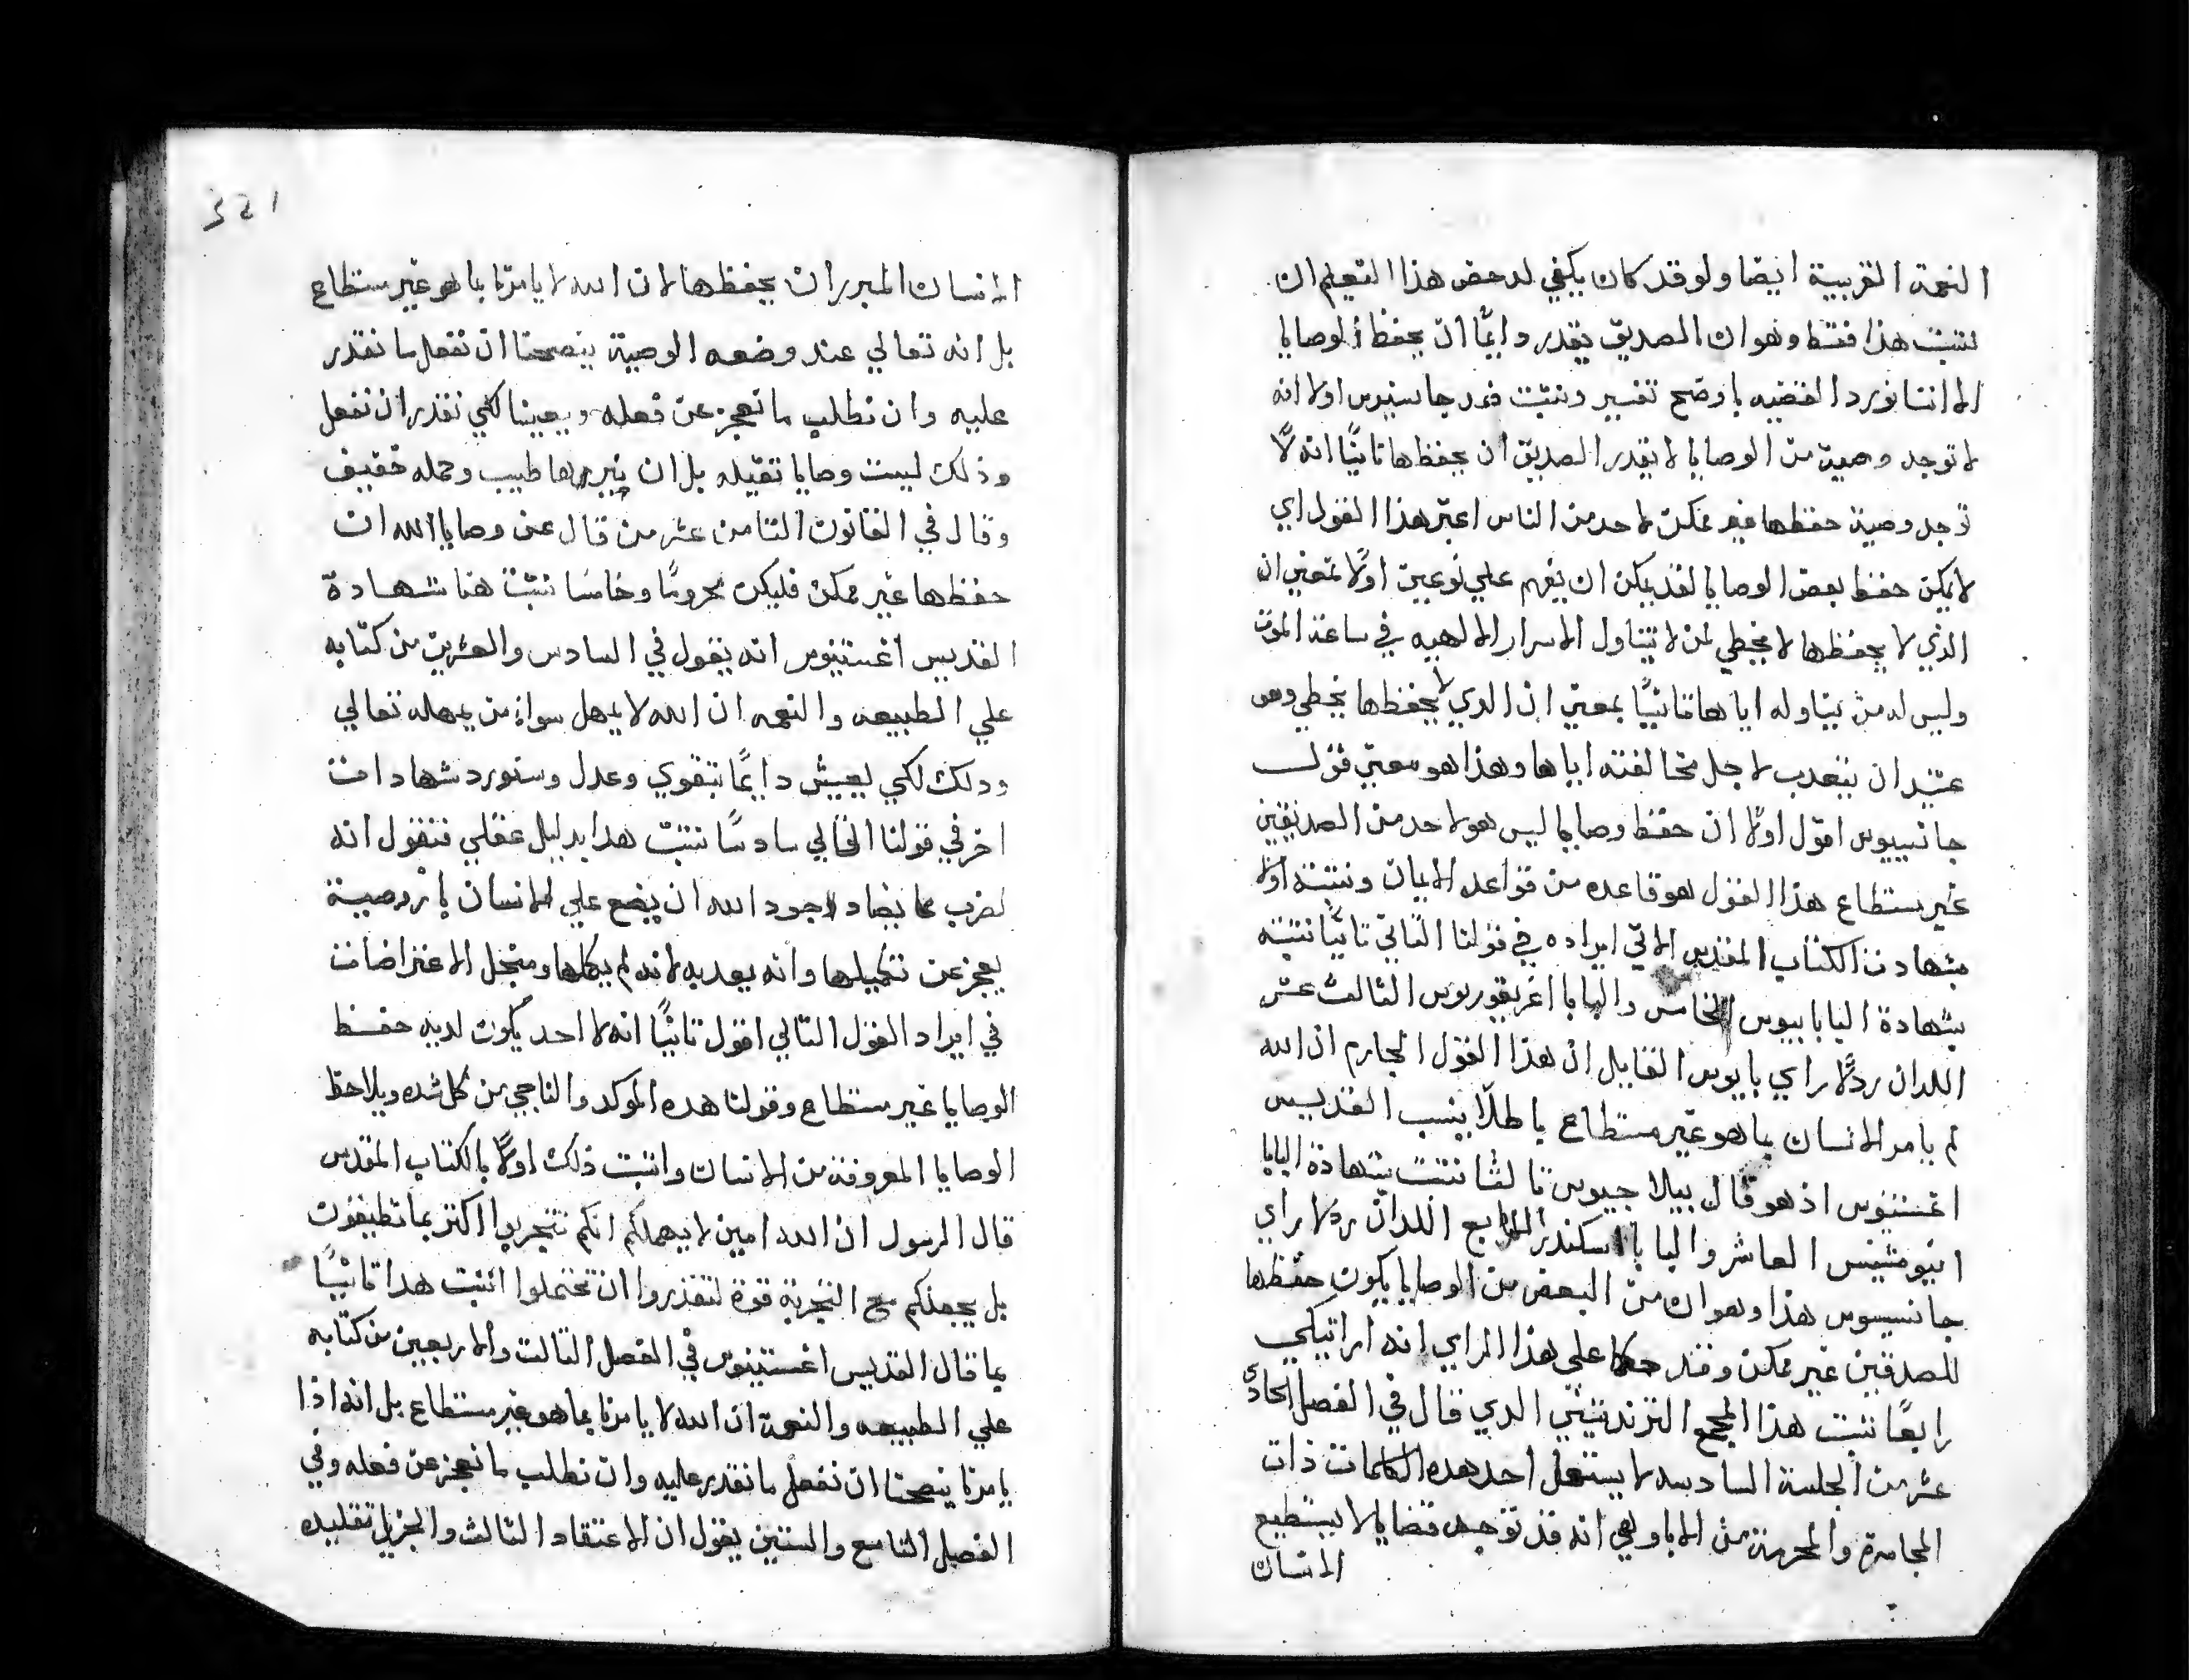 النعمة القريبية ايضا ولو قد كان يكفي لدحض هذا التعليم ان
نثبت هذا فقط وهو ان الصديق يقدر دايمًا ان يحفظ الوصايا
الا اننا نورد القضيه باوضح تفسير ونثبت ضد جانسنيوس اولا انه
لا توجد وصية من الوصايا لا يقدر الصديق ان يحفظها ثانيًا انه لا
توجد وصية حفظها غير ممكن لاحد من الناس اعبر هذا القول اي
لا يمكن حفظ بعض الوصايا لقد يمكن ان يفهم علي نوعين اولًا بمعني ان
الذي لا يحفظها لا يخطي لمن لا يتناول الاسرار الالهيه في ساعة الموت
وليس له من يناوله اياها ثانيًا بمعني ان الدي لا يحفظها يخطي وهو
عتيد ان يتعدب لاجل مخالفته اياها وهذا هو معني قول
جانسيوس اقول اولًا ان حفظ وصايا ليس هو لاحد من الصديقين
غير مستطاع هذا القول هو قاعده من قواعد الايمان ونثبته اولا
بشهادت الكتاب المقدس الاتي ايراده في قولنا الثاني ثانيًا نثبته
بشهادة البابا بيوس الخامس والبابا اغريغوريوس الثالث عشر
اللدان ردلا راي بايوس القايل ان هذا القول الجازم ان الله
لم يامر الانسان بما هو غير مستطاع باطلًا ينسب القديس
اغستنوس اذ هو قال بيلاجيوس ثالثًا نثبت بشهادة البابا
اينوشنيس العاشر والبابا اسكندر السابع اللدان ردلا راي
جانسيوس هذا وهو ان من البعض من الوصايا يكون حفظها
للصدقين غير ممكن وقد حكما علي هذا الراي انه اراتيكي
رابعًا نثبت هذا المجمع التزندنتيني الدي قال في الفصل الحادي
عشر من الجلسة السادسه لا يستعمل احد هده الكلمات ذات
المجاسرة والمحرمة من الابا وهي انه قد توجد قضايا لا يستطيع
الانسان
321
الانسان المبرر ان يحفظها لان الله لا يامرنا بما هو غير مستطاع
بل انه تعالي عند وضعه الوصية ينصحنا ان نفعل ما نقدر
عليه وان نطلب ما نعجز عن فعله ويعيننا لكي نقدر ان نفعل
وذلك ليست وصايا تقيله بل ان نيرها طيب وحمله خفيف
وقال في القانون الثامن عشر من قال عن وصايا الله ان
حفظها غير ممكن فليكن محرومًا وخامسًا نثبت هنا شهادة
القديس اغستنيوس انه يقول في السادس والعشرين من كتابه
علي الطبيعه والنعمه ان الله لا يمهل سواء من يمهله تعالي
ودلك لكي يعيش دايمًا بتقوي وعدل وسنورد شهادات
اخر في قولنا التالي سادسًا نثبت هدا بدليل عقلي فنقول انه
لضرب مما يضاد جود الله ان يضع علي الانسان بار وصية
يعجز عن تكميلها وانه يعدبه لانه لم يكملها وستحل الاعتراضات
في ايراد القول التالي اقول ثانيًا انه لا احد يكون لديه حفظ
الوصايا غير مستطاع وقولنا هده الموكد والناجي من كل شده ويلاحظ
الوصايا المعروفة من الانسان واثبت ذلك اولًا بالكتاب المقدس
قال الرسول ان الله امين لا يهملكم انكم تتجربوا اكثر بما تطيقون
بل يجعلكم مع التجربة قوة لتقدروا ان تحتملوا اثبت هدا ثانيًا
بما قال القديس اغستينوس في الفصل الثالث والاربعين من كتابه
علي الطبيعه والنعمة ان الله لا يامرنا بما هو غير مستطاع بل انه اذا
يامرنا ينصحنا ان نفعل ما نقدر عليه وان نطلب ما نعجز عن فعله وفي
الفصل التاسع والستين يقول ان الاعتقاد الثالث والجزيل تقليده